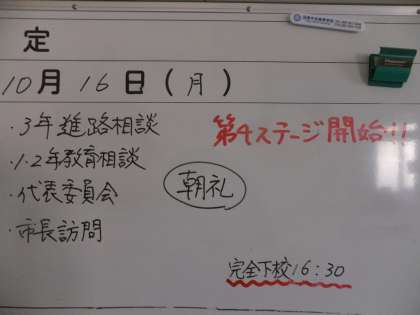 定
10月16日(月)
・3年進路相談
第4ステージ開始!!
・1・2年教育相談
・代表委員会
朝礼
・市長訪問
完全下校16:30